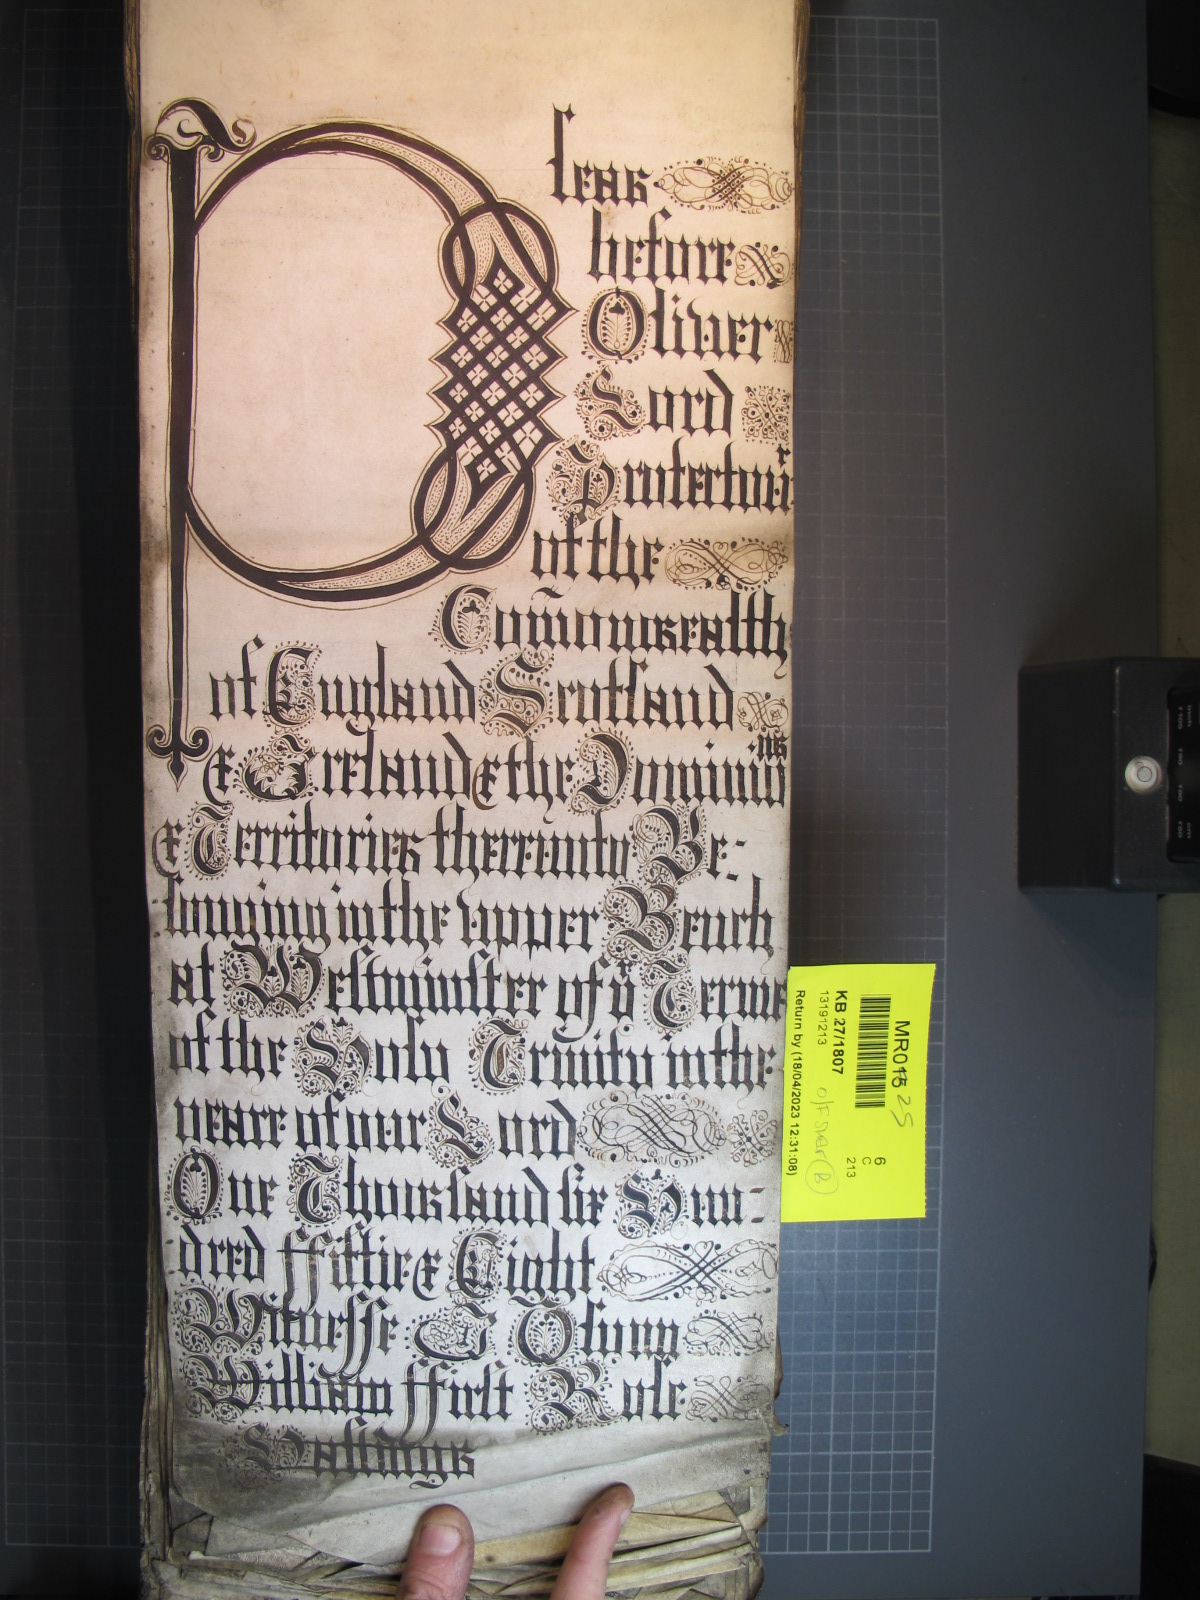 Pleas
before
Oliver
Lord
Protectour
of the
Com̄onwealth
of England Scotland
& Ireland & the Dominions
& Territories thereunto Be-
longing in the upper Bench
at Westminster of yͬ Terme
of the Holy Trinity in the
yeare of our Lord
One Thousand six Hun-
dred ffiftie & Eight
Witnesse J Glynn
William ffirst Role
Hastings
MR018 25
KB 27/1807
13191213
Return by (18/04/2023 12:31:08)
6
C
213